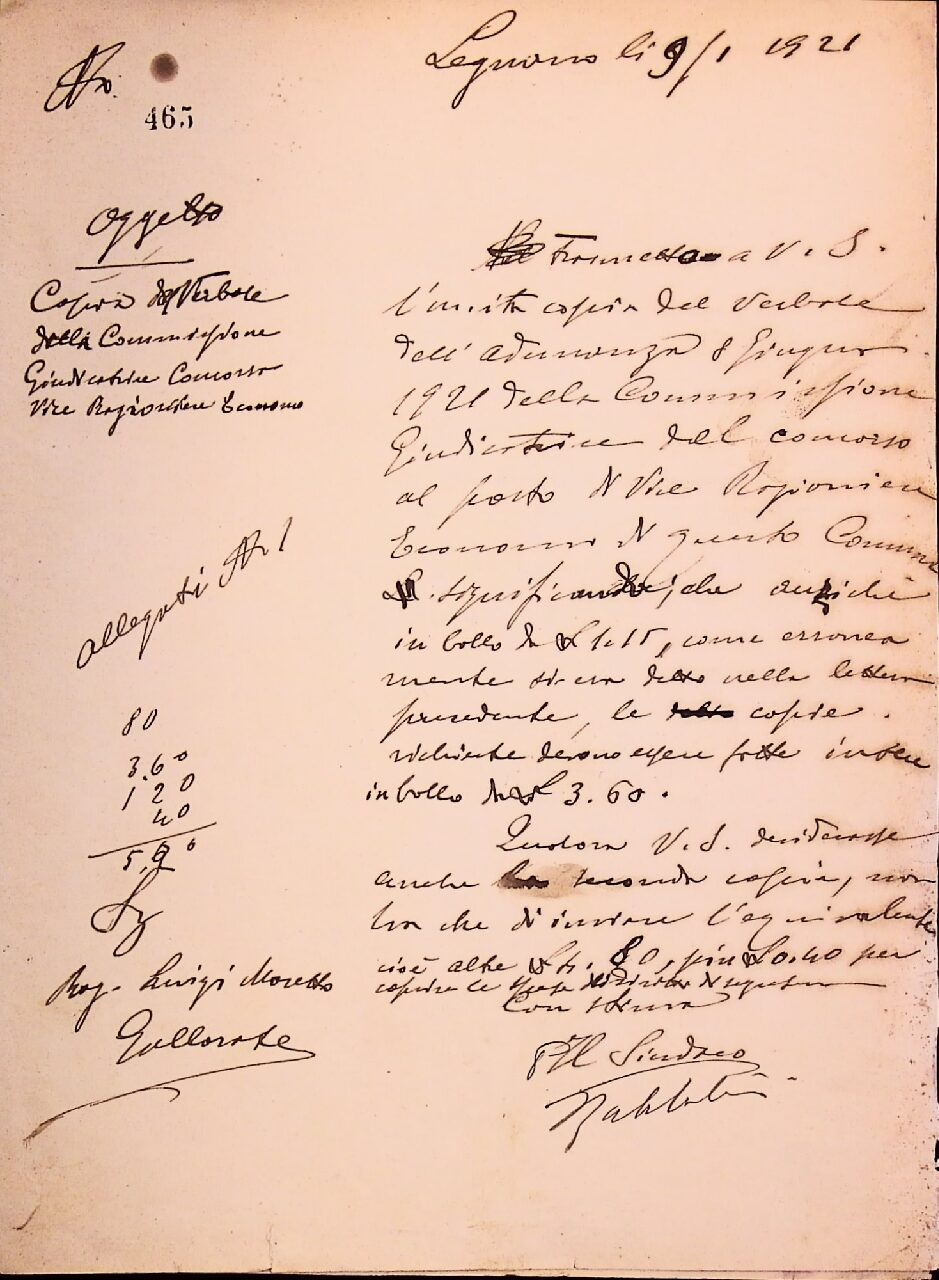 Legnano li 9/1 1921
No.
465
Oggetto
Copia del Verbale
della Commissione
Giudicatrice Concorso
Vice Ragioniere Economo
allegati No 1
80
3.60
120
40
5.90
Rag. Luigi Moretto
Gallarate
Trasmetto a V. S.
l'unita copia del Verbale
dell'adunanza 8 Giugno
1921 della Commissione
Giudicatrice del concorso
al posto di Vice Ragioniere
Economo di questo Comune
significando che anziché
in bollo da £ 1.15, come erronea
mente si era detto nella lettera
precedente, le copie
richieste devono essere fatte invece
in bollo da £ 3.60.
Qualora V. S. desiderasse
anche seconda copia, non
ha che di inviare l'equivalente
cioè altre £ 4.80, più £ 0.40 per
coprire le spese
Con stima
Il Sindaco